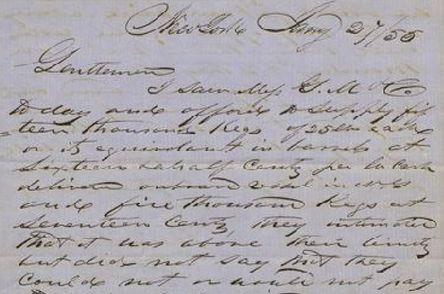 New York Jany 27/55
Gentlemen
I saw Mess G. M & Co
to day and offered to supply fif
=teen thousand Kegs of 25 lb each
or its equivalent in barrels at
Sixteen & a half Cents per lb Cash
delivered on board vessel in
and five thousand Kegs at
Seventeen Cents, they intimated
that it was above their limits
but did not say that they
could not or would not pay